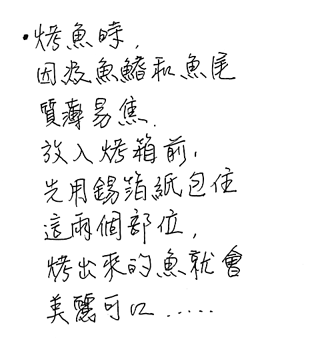 ·烤魚時,
因為魚鰭和魚尾
質薄易焦.
放入烤箱前,
先用錫箔紙包住
這兩個部位,
烤出來的魚就會
美麗可口.....